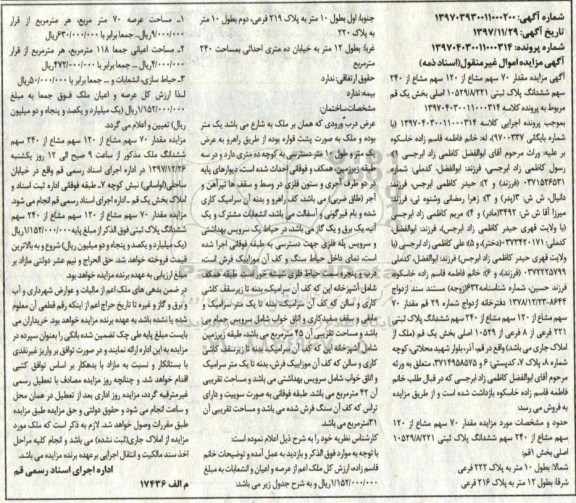 شماره آگهی: ۱۳۹۷۰۳۹۳۰۰۱۱۰۰۰۲۰۰
تاریخ آگهی: ۱۳۹۷/۱۱/۲۹
شماره پرونده: ۱۳۹۷۰۴۰۳۰۰۱۱۰۰۰۳۱۴
آگهی مزایده اموال غیرمنقول (اسناد ذمه)
آگهی مزایده مقدار ۷۰ سهم مشاع از ۱۲۰ سهم مشاع از ۲۴۰
سهم ششدانگ پلاک ثبتی ۱۰۵۲۹/۸/۲۲۱ اصلی بخش یک قم
مربوط به پرونده کلاسه ۱۳۹۷۰۴۰۳۰۰۱۱۰۰۰۳۱۴
بموجب پرونده اجرایی کلاسه ۱۳۹۷۰۴۰۳۰۰۱۱۰۰۰۳۱۴ (با
شماره بایگانی ۹۷۰۰۳۳۷)، له: خانم فاطمه قاسم زاده خاسکوه
بر علیه: وراث مرحوم آقای ابوالفضل کاظمی زاد ابرجسی ۱)
رسول کاظمی زاد ابرجسی، فرزند: ابوالفضل، کدملی: شماره
۰۳۷۱۵۲۶۵۳۱ (فرزند) و ۲) حیدر کاظمی ابرجس، فرزند:
دانیال، ش ش: ۳ (پدر) و ۳) زهرا رمضانی وشنوه ئی، فرزند:
میرزا آقا ش ش: ۳۴۹۲ (مادر) و ۴) مریم کاظمی زاد ابرجسی
(با ولایت قهری حیدر کاظمی ابرجس)، فرزند: ابوالفضل،
کدملی: ۰۳۷۳۴۲۰۱۷۱ (دختر) و ۵) علی کاظمی زاد ابرجسی (با
ولایت قهری حیدر کاظمی ابرجس) فرزند: ابوالفضل، کدملی:
۰۳۷۲۲۲۵۷۹۹ (فرزند) و ۶) خانم فاطمه قاسم زاده خاسکوه
فرزند: حسین، شماره شناسنامه: ۶۳۳ (زوجه) مستند سند ازدواج
۸۶۴۴-۱۳۷۸/۱۲/۲۳ دفترخانه ازدواج شماره ۲۹ قم مقدار ۷۰
سهم مشاع از ۱۲۰ سهم مشاع از ۲۴۰ سهم ششدانگ پلاک ثبتی
۲۲۱ فرعی از ۸ فرعی از ۱۰۵۲۹ اصلی بخش یک قم (ملک از
املاک جاری می باشد) واقع در قم، آذر، بلوار شهید محلاتی، کوچه
شماره ۸، پلاک ۷، کدپستی: ۶ و ۳۷۱۴۹۵۸۵۷۵ متعلق به ورثه
مرحوم آقای ابوالفضل کاظمی زاد ابرجسی که در قبال طلب خانم
فاطمه قاسم زاده خاسکوه بازداشت شده است و از طریق مزایده
به فروش می رسد:
حدود و مشخصات مورد مزایده مقدار ۷۰ سهم مشاع از ۱۲۰
سهم مشاع از ۲۴۰ سهم ششدانگ پلاک ثبتی ۱۰۵۲۹/۸/۲۲۱
اصلی بخش ۱ قم:
شمالا: بطول ۱۰ متر به پلاک ۲۲۲ فرعی
شرقا: بطول ۱۲ متر به پلاک ۲۱۶ فرعی
جنوبا: اول بطول ۱۰ متر به پلاک ۲۱۹ فرعی، دوم بطول ۱۰ متر
به پلاک ۲۲۰
غربا: بطول ۱۲ متر به خیابان ده متری احداثی بمساحت ۲۴۰
مترمربع
حقوق ارتفاقی: ندارد
بیمه: ندارد
مشخصات ساختمان:
عرض درب ورودی که همان بر ملک به شارع می باشد یک متر
بوده و ملک به صورت پشت قواره بوده از طریق راهرو به عرض
یک متر و طول ۱۰ متر دسترسی به کوچه ده متری دارد و در سه
طبقه زیرزمین، همکف و فوقانی احداث شده است، دیوارهای پایه
در دو طرف آجری و ستون فلزی در وسط و سقف ها تیرآهن و
آجر (طاق ضربی) می باشد، کف راهرو و بدنه آن سرامیک کاری
شده و بام قیرگونی و آسفالت می باشد، انشعابات مشترک و یک
آنیه یک برق و یک گاز می باشد، در حیاط یک سرویس بهداشتی
و سرویس پله فلزی جهت دسترسی به طبقه فوقانی اجرا شده
است، نمای داخل حیاط سنگ و کف آن موزاییک فرش است،
درب و پنجره های مشرف به حیاط فلزی شیشه خور است. طبقه همکف
شامل آشپزخانه اپن که کف آن سرامیک، بدنه تا زیرسقف کاشی
کاری و سالن که کف آن سرامیک، بدنه تا یک متر سرامیک و
مابقی و سقف سفیدکاری و اتاق خواب شامل سرویس حمام می
باشد و مساحت تقریبی آن ۴۵ مترمربع می باشد، طبقه زیرزمین
شامل آشپزخانه اپن که کف آن سرامیک بدنه تا زیرسقف کاشی
کاری و سالن که کف آن موزاییک فرش، بدنه تا یک متر سرامیک
و اتاق خواب شامل سرویس بهداشتی می باشد و مساحت تقریبی
آن ۴۲ مترمربع می باشد. طبقه فوقانی به صورت سوییت و دارای
تراس که کف آن سنگ فرش شده می باشد و مساحت تقریبی آن
۳۱مترمربع می باشد
کارشناس نظریه خود را به شرح ذیل اعلام نموده است:
با توجه به موارد فوق الذکر و بازدید به عمل آمده و توضیحات خانم
قاسم زاده، ارزش کل ملک اعم از عرصه و اعیان و انشعابات به مبلغ
۱/۱۵۲/۰۰۰/۰۰۰ریال و به شرح جدول زیر می باشد:
۱- مساحت عرصه ۷۰ متر مربع، هر مترمربع از قرار
۹/۰۰۰/۰۰۰ریال... جمعا برابر با ۶۳۰/۰۰۰/۰۰۰ریال
۲- مساحت اعیانی جمعا ۱۱۸ مترمربع، هر مترمربع از قرار
۴/۰۰۰/۰۰۰ریال... جمعا برابر با ۴۷۲/۰۰۰/۰۰۰ریال
۳- حیاط سازی، انشعابات و... جمعا برابر با ۵۰/۰۰۰/۰۰۰ریال
لذا ارزش کل عرصه و اعیان ملک فوق جمعا به مبلغ
۱/۱۵۲/۰۰۰/۰۰۰ریال (یک میلیارد و یکصد و پنجاه و دو میلیون
ریال) تعیین و اعلام می گردد.
مزایده مقدار ۷۰ سهم مشاع از ۱۲۰ سهم مشاع از ۲۴۰ سهم
ششدانگ ملک مذکور از ساعت ۹ صبح الی ۱۲ روز یکشنبه
۱۳۹۷/۱۲/۲۶ در اداره اجرای اسناد رسمی قم واقع در خیابان
ساحلی (لواسانی) نبش کوچه ۷- طبقه فوقانی اداره ثبت اسناد و
املاک بخش یک قم - اداره اجرای اسناد رسمی قم انجام می شود.
مزایده مقدار ۷۰ سهم مشاع از ۱۲۰ سهم مشاع از ۲۴۰ سهم
ششدانگ پلاک ثبتی فوق الذکر از مبلغ پایه ۱/۱۵۲/۰۰۰/۰۰۰ریال
(یک میلیارد و یکصد و پنجاه و دو میلیون ریال) شروع و به بالاترین
قیمت فروخته خواهد شد. حق الحراج و نیم عشر دولتی مازاد بر
مبلغ ارزیابی به عهده برنده مزایده خواهد بود.
در ضمن بدهی های ملک اعم از مالیات و عوارض شهرداری و آب
و برق و گاز و غیره تا تاریخ حراج اعم از اینکه رقم قطعی آن معلوم
شده یا نشده باشد به عهده برنده مزایده خواهد بود. خریداران می
بایست مبلغ پایه طی چک تضمین شده بانکی را بعنوان سپرده در
مزایده به این اداره ارائه نمایند و در صورت توافق بر واریز غیرنقدی
با بستانکار و نسبت به مازاد با بدهکار بر اساس توافق کتبی
اقدام خواهد شد. و چنانچه روز مزایده مصادف با تعطیل رسمی
غیرمترقبه گردد، مزایده روز اداری بعد از تعطیل در همان محل
و ساعت انجام می شود و حقوق دولتی و حق مزایده طبق مزایده
طبق مقررات وصول خواهد شد. لازم به ذکر است که ملک مورد
مزایده از املاک جاری (ثبت نشده) می باشد و انجام کلیه مراحل
اخذ سند مالکیت و انتقال اجرایی بر عهده برنده مزایده می باشد.
اداره اجرای اسناد رسمی قم
م الف ۱۷۴۳۶